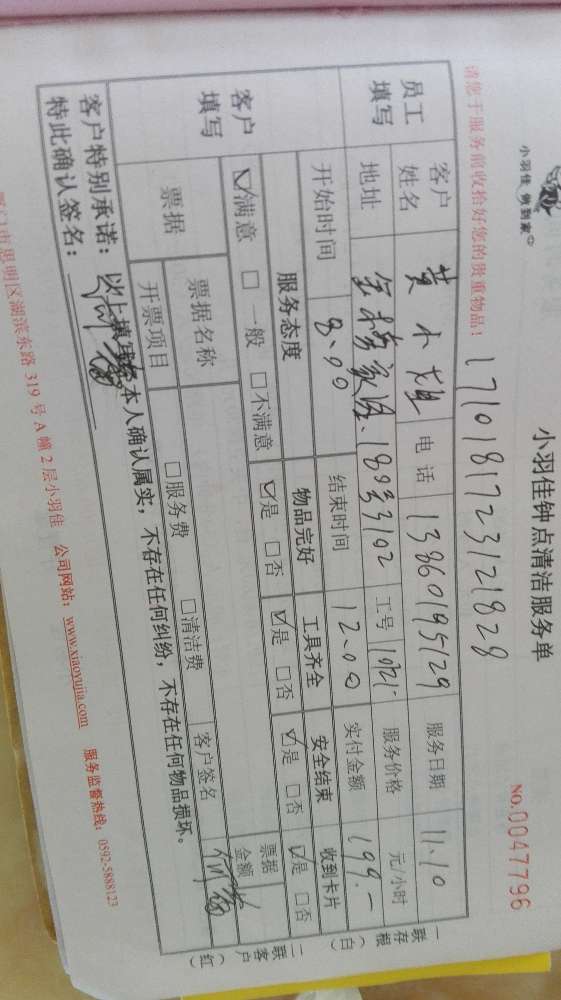 小羽佳 做到家
小羽佳钟点清洁服务单
NO.0047796
请您于服务前收拾好您的贵重物品！
1710181723121828
员工填写
客户姓名 黄小姐 电话 13860195129 服务日期 11.10
地址 18#3102 工号 1021 服务价格 元/小时
开始时间 8:00 结束时间 12:00 实付金额 199.-
客户填写
服务态度 物品完好 工具齐全 安全结束 收到卡片
☑满意 □一般 □不满意 ☑是 □否 ☑是 □否 ☑是 □否 ☑是 □否
票据 票据名称 客户签名 票据金额
开票项目 □服务费 □清洁费
客户特别承诺：以上填写经本人确认属实，不存在任何纠纷，不存在任何物品损坏。
特此确认签名：
一联存根（白）
二联客户（红）
厦门市思明区湖滨东路319号A幢2层小羽佳 公司网站：www.xiaoyujia.com 服务监督热线：0592-5888123